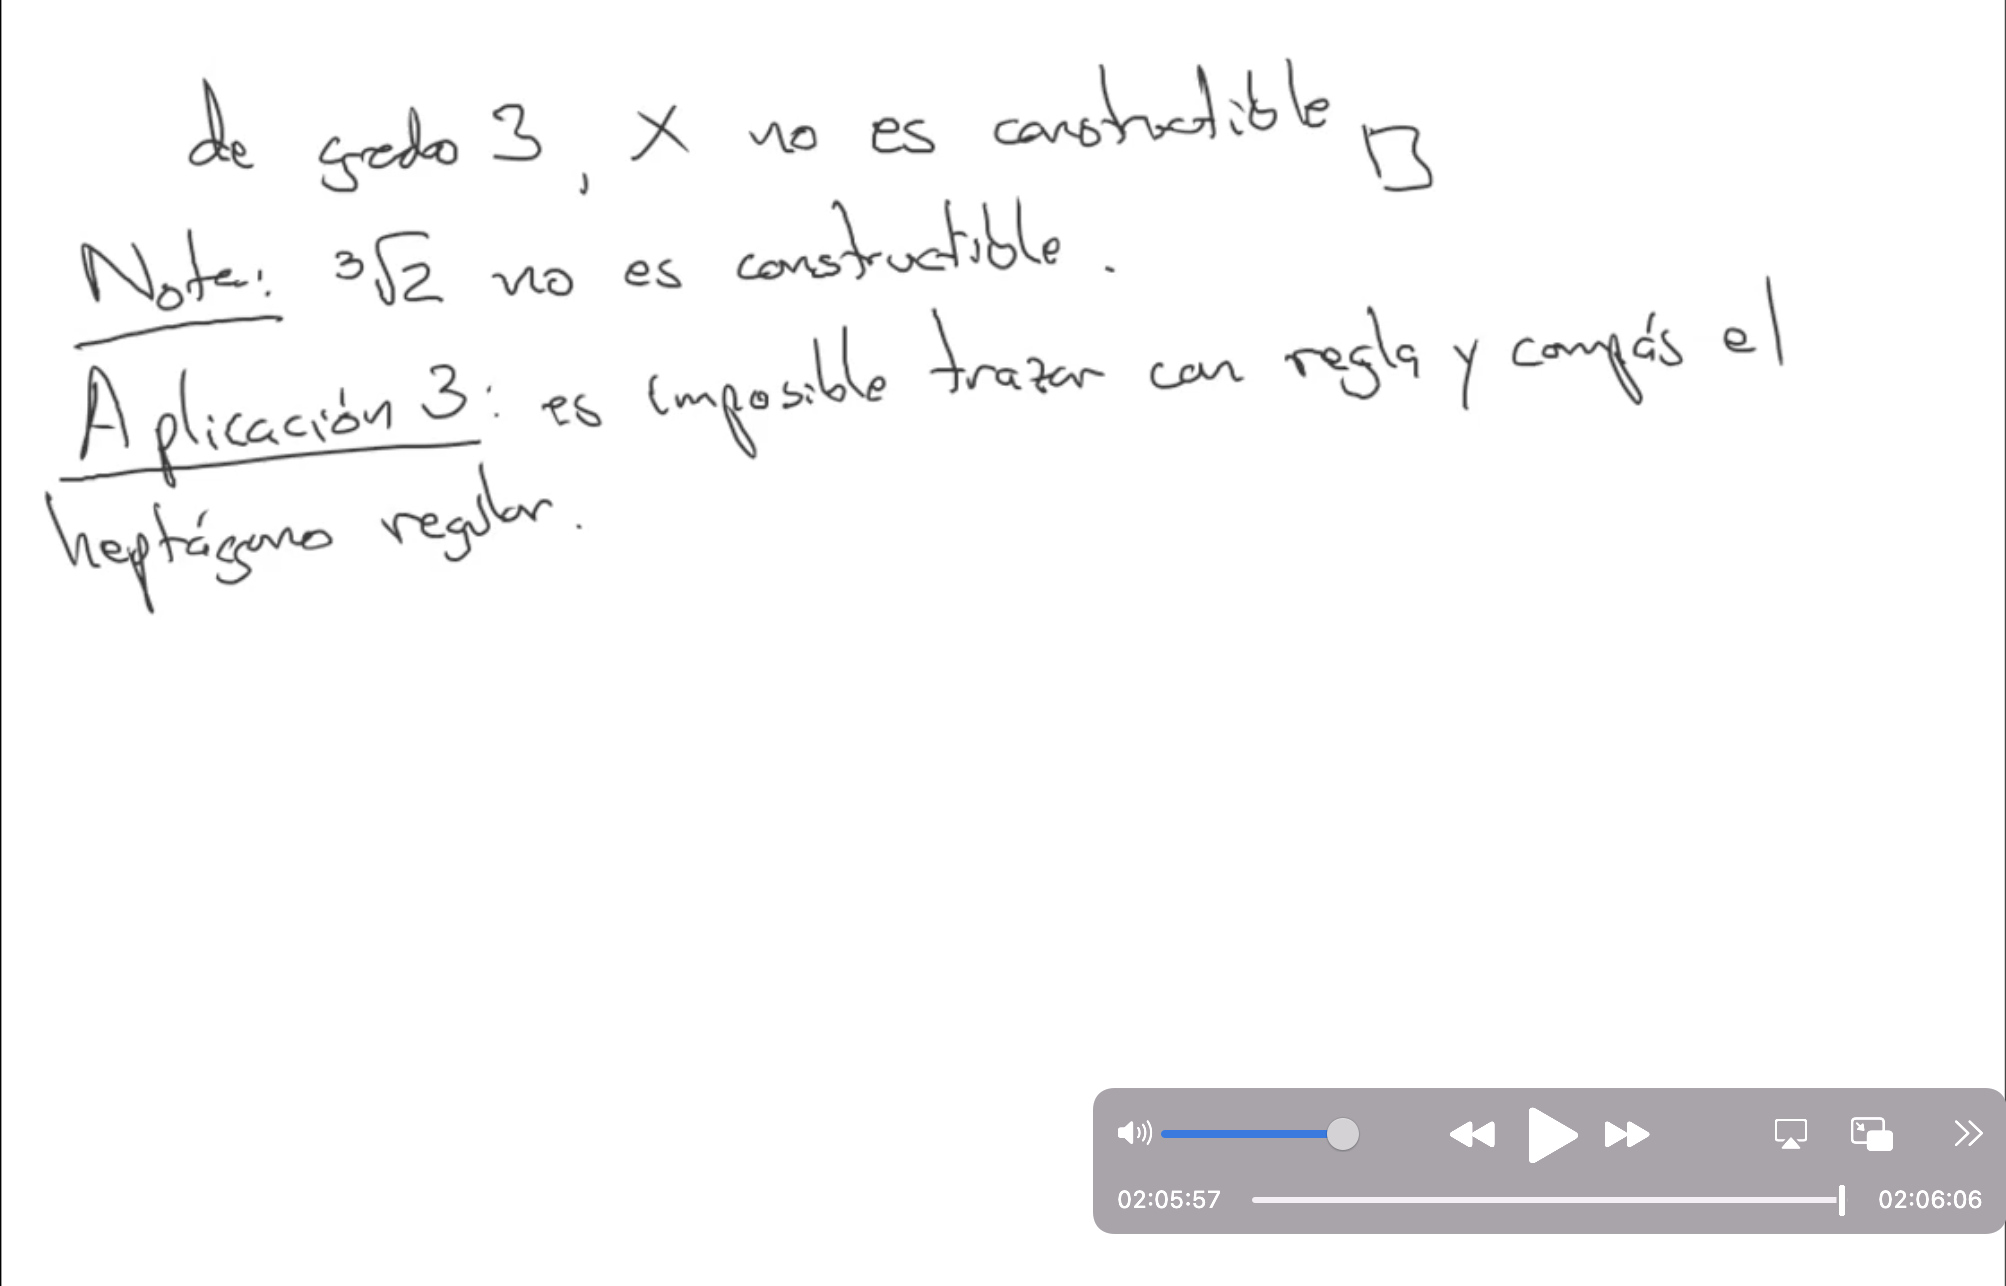 de grado 3, X no es constructible
Nota: ³√2 no es constructible.
Aplicación 3: es imposible trazar con regla y compás el
heptágono regular.
02:05:57
02:06:06